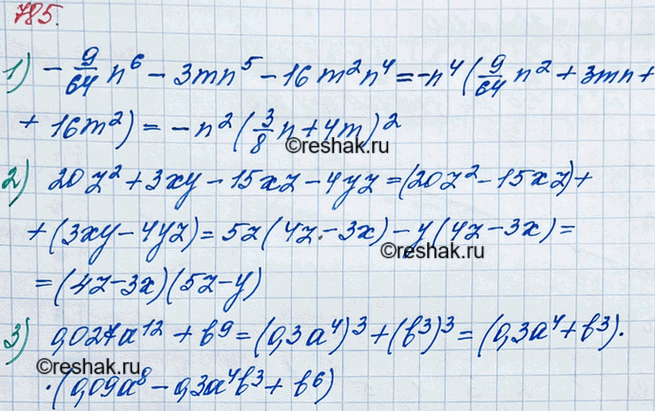 785.
1) -9/64 n⁶ - 3mn⁵ - 16m²n⁴ = -n⁴(9/64 n² + 3mn +
+ 16m²) = -n²(3/8 n + 4m)²
©reshak.ru
2) 20z² + 3xy - 15xz - 4yz = (20z² - 15xz) +
+ (3xy - 4yz) = 5z(4z - 3x) - y(4z - 3x) =
©reshak.ru
= (4z - 3x)(5z - y)
3) 0,027a¹² + b⁹ = (0,3a⁴)³ + (b³)³ = (0,3a⁴ + b³)·
·(0,09a⁸ - 0,3a⁴b³ + b⁶)
©reshak.ru